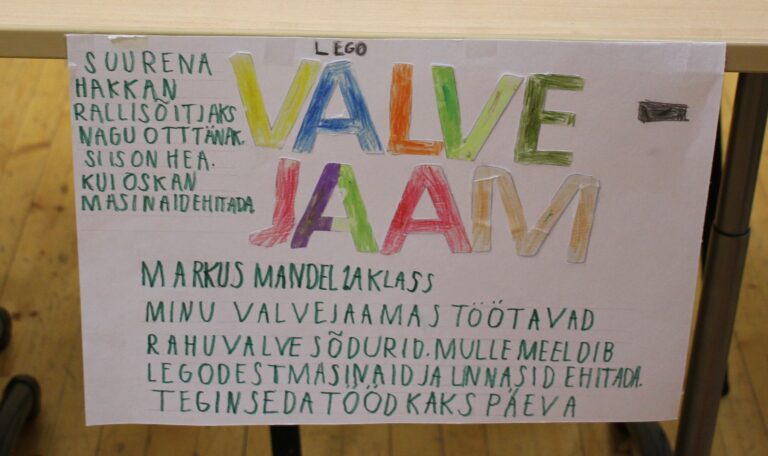 SUURENA
HAKKAN
RALLISÕITJAKS
NAGU OTTTÄNAK.
SIIS ON HEA.
KUI OSKAN
MASINAID EHITADA.
LEGO
VALVE
JAAM
MARKUS MANDEL 1A KLASS
MINU VALVEJAAMAS TÖÖTAVAD
RAHUVALVE SÕDURID. MULLE MEELDIB
LEGODEST MASINAID JA LINNASID EHITADA.
TEGIN SEDA TÖÖD KAKS PÄEVA